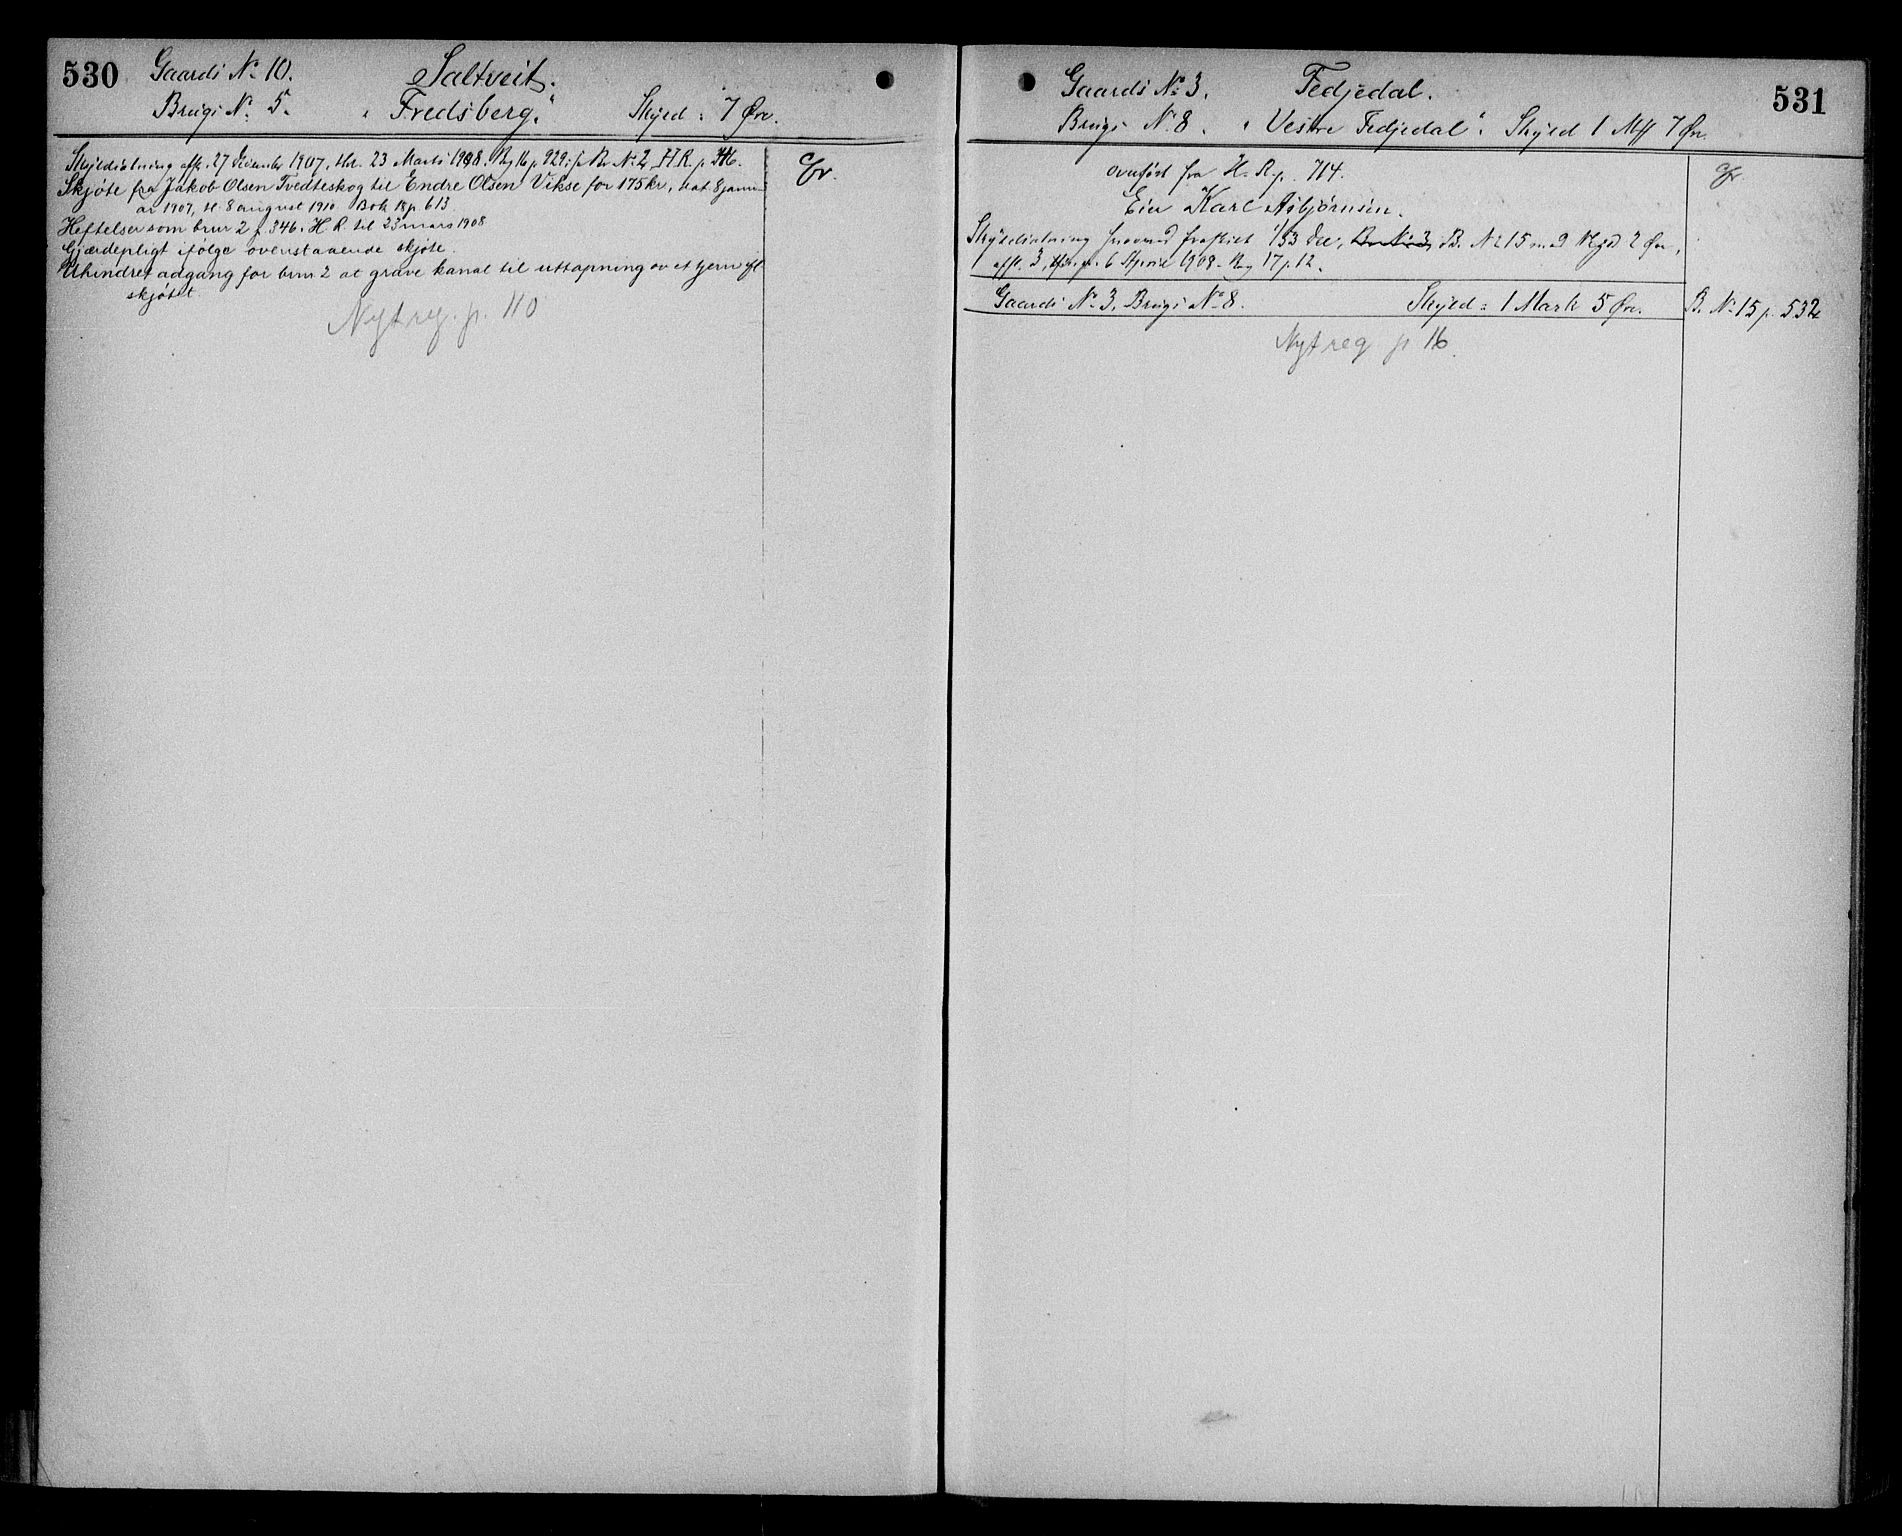 530
Gaards No 10. Saltveit.
Brugs No 5. "Fredsberg." Skyld = 7 Øre.
Skylddelning afh. 27 December 1907, thl. 23 Marts 1908. Bg 16 p. 929: fra Br No 2, H.R. p. 346.
Skjøte fra Jakob Olsen Tvedteskog til Endre Olsen Vikse for 175 kr, dat 8 janu-
ar 1907, tl. 8 august 1910 Bok 18 p 613
Heftelser som brur 2 p. 346. H R. til 23 mars 1908
Gjærdepligt ifølge ovenstaaende skjøte.
Uhindret adgang for brnr 2 at grave kanal til uttapning av et tjern ifl
skjøtet.
Nyt reg. p. 110
Cfr.
531
Gaards No 3. Fedjedal.
Brugs No 8. "Vestre Fedjedal". Skyld 1 Mk 7 Øre.
overført fra H. R p. 714.
Eier Karl Asbjørnsen.
Skylddelning hvorved fraskilt 1/53 Del, Br No 3, B. No 15 med Skyld 2 Øre,
afh. 3, thl. 6 April 1908. Bog 17 p. 12.
Gaards No 3, Brugs No 8. Skyld = 1 Mark 5 Øre.
Nyt reg p 16.
Cfr.
B. No 15 p. 532